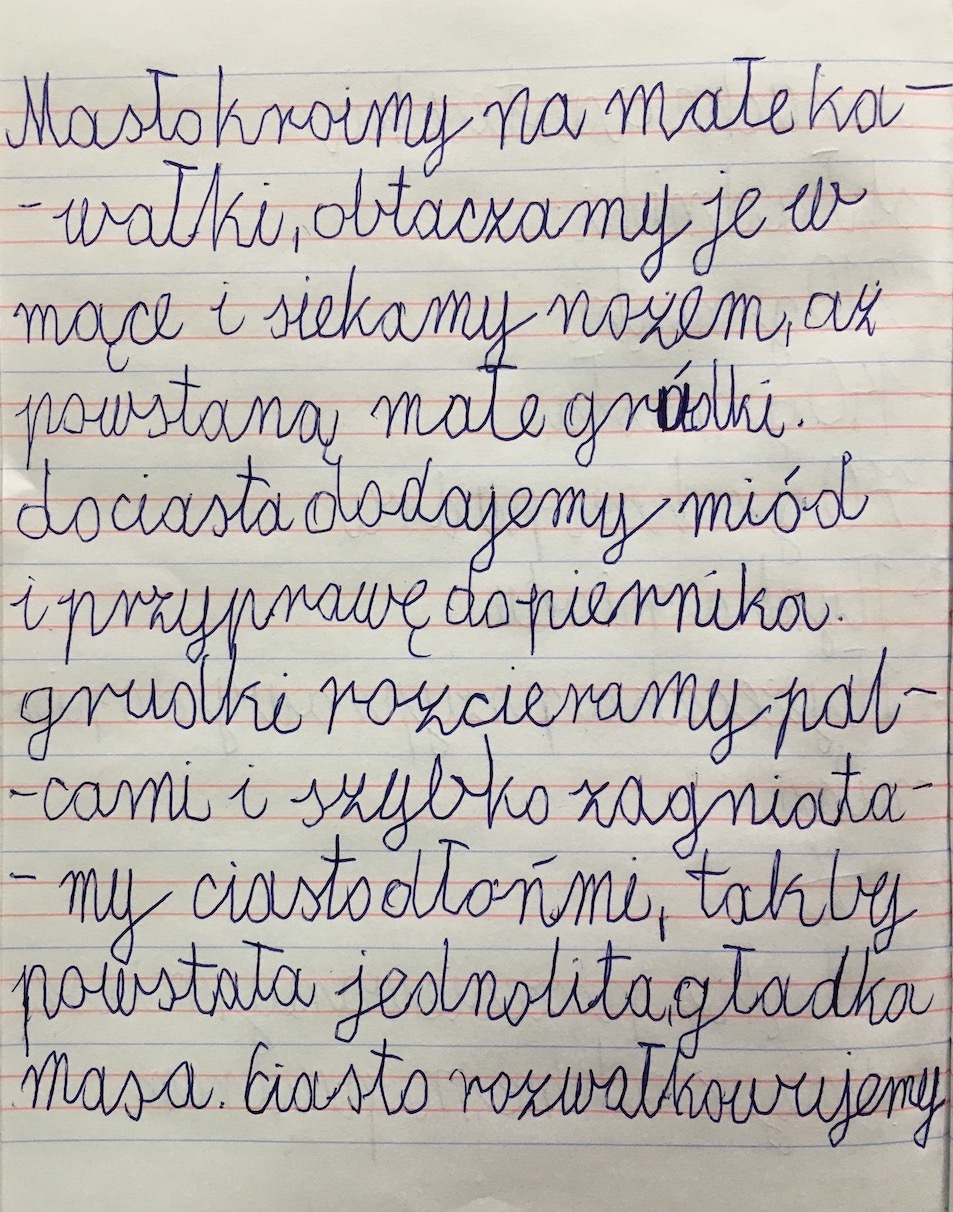 Masło kroimy na małe ka-
-wałki, obtaczamy je w
mące i siekamy nożem, aż
powstaną małe grudki.
do ciasta dodajemy miód
i przyprawę do piernika.
grudki rozcieramy pal-
-cami i szybko zagniata-
-my ciasto dłońmi, tak by
powstała jednolita, gładka
masa. Ciasto rozwałkowujemy